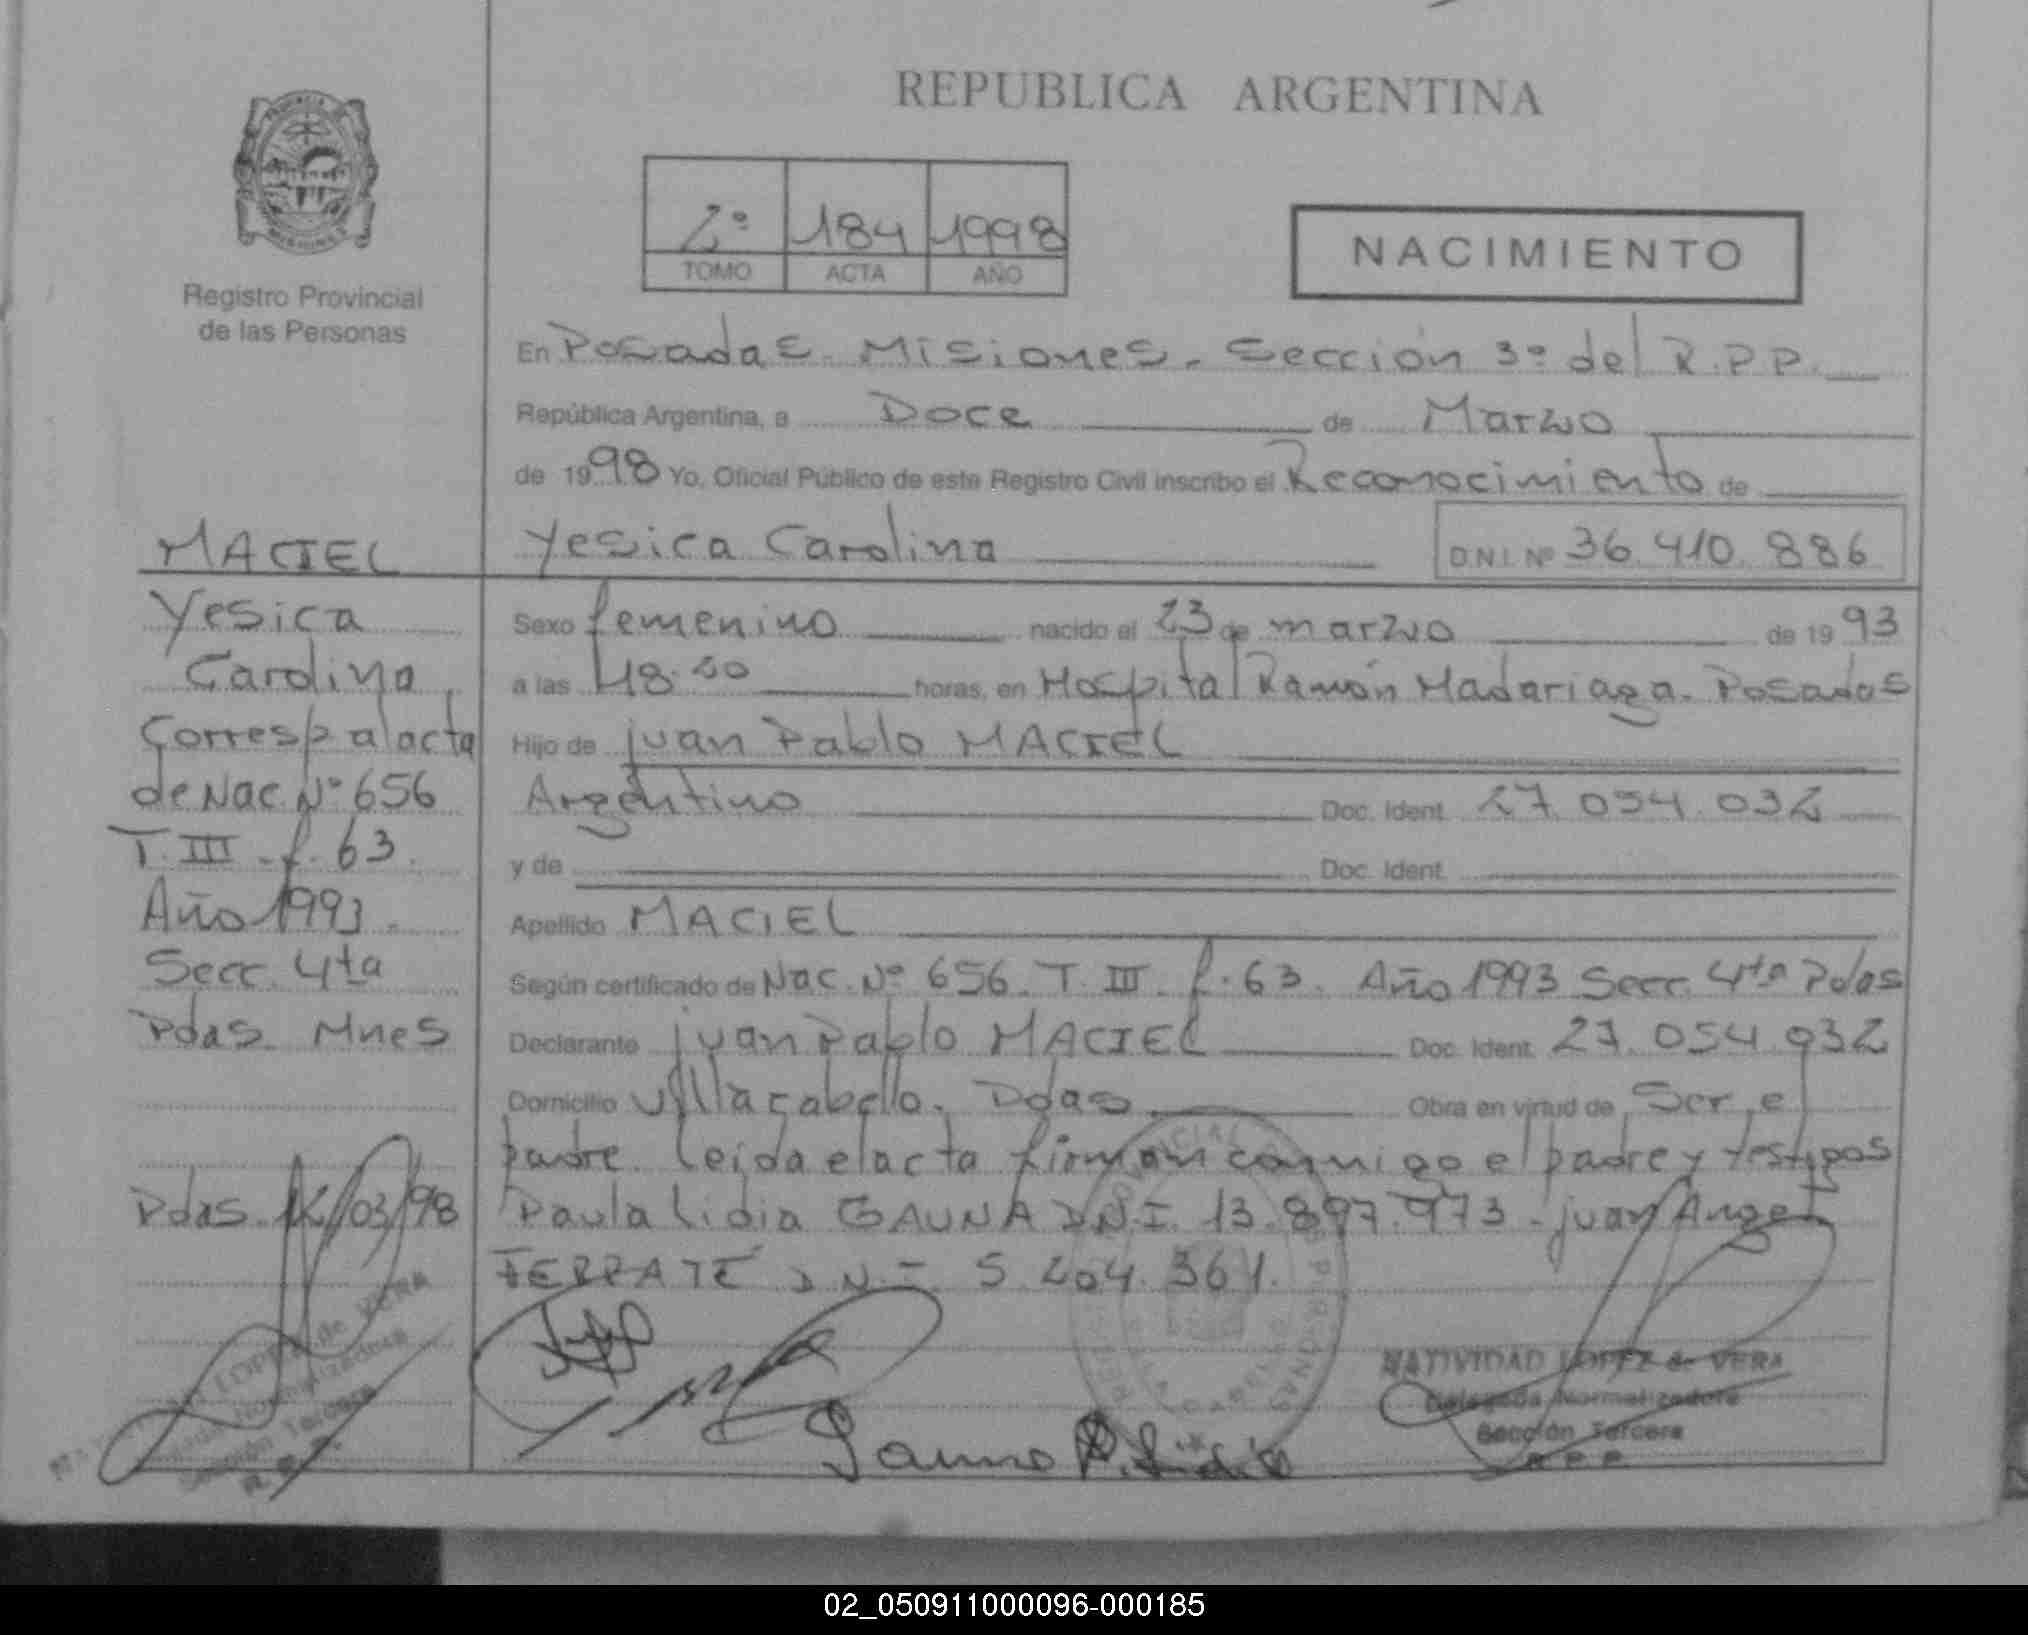 REPUBLICA ARGENTINA
Registro Provincial
de las Personas
2º 184 1998
TOMO ACTA AÑO
NACIMIENTO
En Posadas. Misiones. Sección 3º del R.P.P.
República Argentina, a Doce de Marzo
de 1998 Yo, Oficial Público de este Registro Civil inscribo el Reconocimiento de
Yesica Carolina D.N.I. Nº 36.410.886
MACIEL
Yesica
Carolina
Corresp al acta
de Nac. Nº 656
T. III - f. 63.
Año 1993.
Secc. 4ta
Pdas. Mnes
Pdas. 12/03/98
Sexo femenino nacido el 23 de marzo de 1993
a las 18.20 horas, en Hospital Ramón Madariaga. Posadas
Hijo de Juan Pablo MACIEL
Argentino Doc. Ident. 27.054.032
y de Doc. Ident.
Apellido MACIEL
Según certificado de Nac. Nº 656. T. III. f. 63. Año 1993 Secc. 4ta Pdas
Declarante Juan Pablo MACIEL Doc. Ident. 27.054.032
Domicilio Villa Cabello. Pdas Obra en virtud de Ser el
padre. Leida el acta firman conmigo el padre y testigos
Paula Lidia GAUNA D.N.I. 13.897.973 - Juan Angel
FERRATE D.N.I. 5.204.361.
NATIVIDAD LOPEZ de VERA
Delegada Normalizadora
Sección Tercera
R.P.P.
02_050911000096-000185